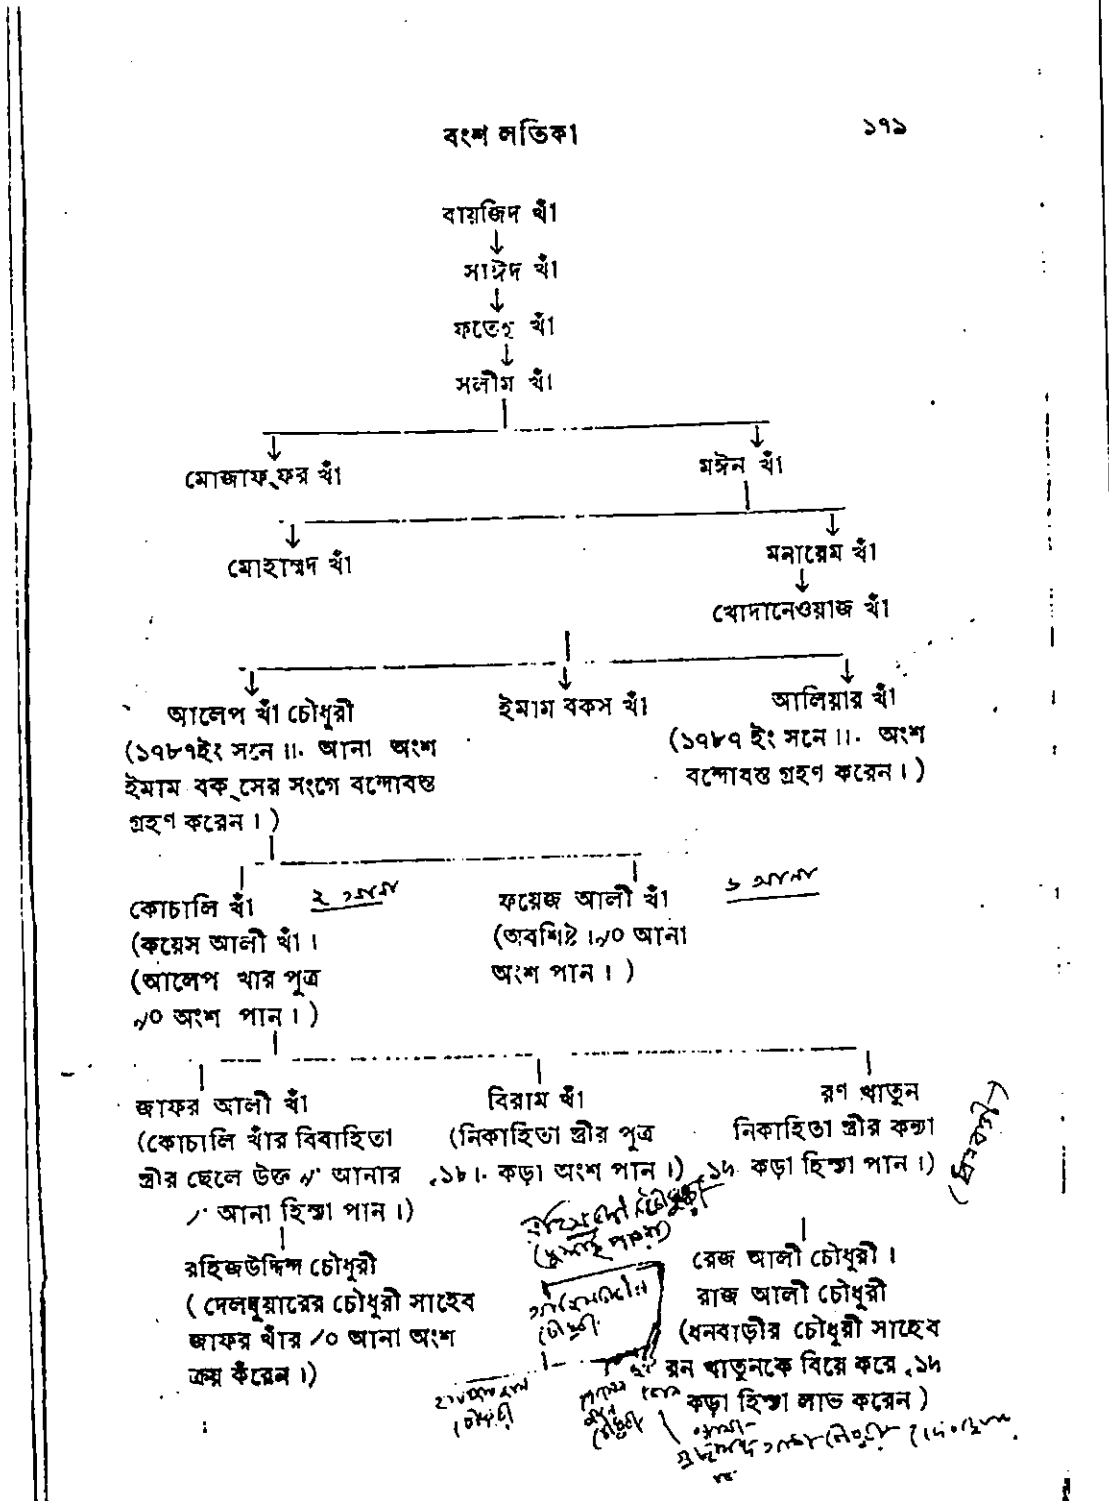 বংশ লতিকা ১৭১
বায়জিদ খাঁ
সাঈদ খাঁ
ফতেহ্ খাঁ
সলীম খাঁ
মোজাফ্ফর খাঁ মঈন খাঁ
মোহাম্মদ খাঁ মনায়েম খাঁ
খোদানেওয়াজ খাঁ
আলেপ খাঁ চৌধুরী
(১৭৮৭ইং সনে ॥০ আনা অংশ
ইমাম বক্সের সংগে বন্দোবস্ত
গ্রহণ করেন।)
ইমাম বকস খাঁ
আলিয়ার খাঁ
(১৭৮৭ ইং সনে ॥০ অংশ
বন্দোবস্ত গ্রহণ করেন।)
কোচালি খাঁ
(কয়েস আলী খাঁ।
(আলেপ খার পুত্র
৵০ অংশ পান।)
ফয়েজ আলী খাঁ
(অবশিষ্ট ।৵০ আনা
অংশ পান।)
৬ আনা
জাফর আলী খাঁ
(কোচালি খাঁর বিবাহিতা
স্ত্রীর ছেলে উক্ত ৵০ আনার
৴০ আনা হিস্যা পান।)
বিরাম খাঁ
(নিকাহিতা স্ত্রীর পুত্র
কড়া অংশ পান।)
রণ খাতুন
নিকাহিতা স্ত্রীর কন্যা
কড়া হিস্যা পান।)
রহিজউদ্দিন চৌধুরী
(দেলদুয়ারের চৌধুরী সাহেব
জাফর খাঁর ৴০ আনা অংশ
ক্রয় করেন।)
রেজ আলী চৌধুরী।
রাজ আলী চৌধুরী
(ধনবাড়ীর চৌধুরী সাহেব
রন খাতুনকে বিয়ে করে
কড়া হিস্যা লাভ করেন)